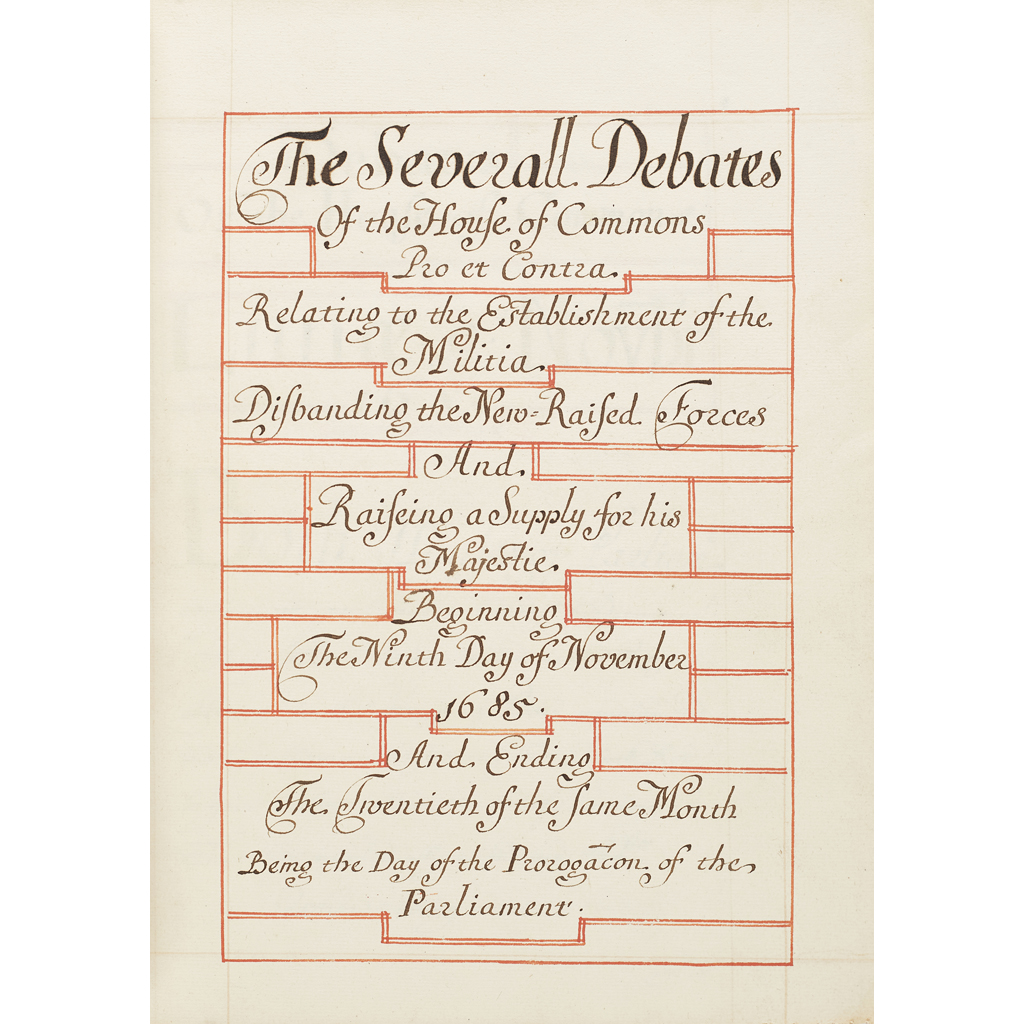 The Severall Debates
Of the Houſe of Commons
Pro et Contra.
Relating to the Establishment of the
Militia.
Diſbanding the New=Raiſed Forces
And.
Raiſeing a Supply for his
Majestie.
Beginning
The Ninth Day of November
1685.
And Ending
The Twentieth of the ſame Month
Being the Day of the Prorogac̃on of the
Parliament.